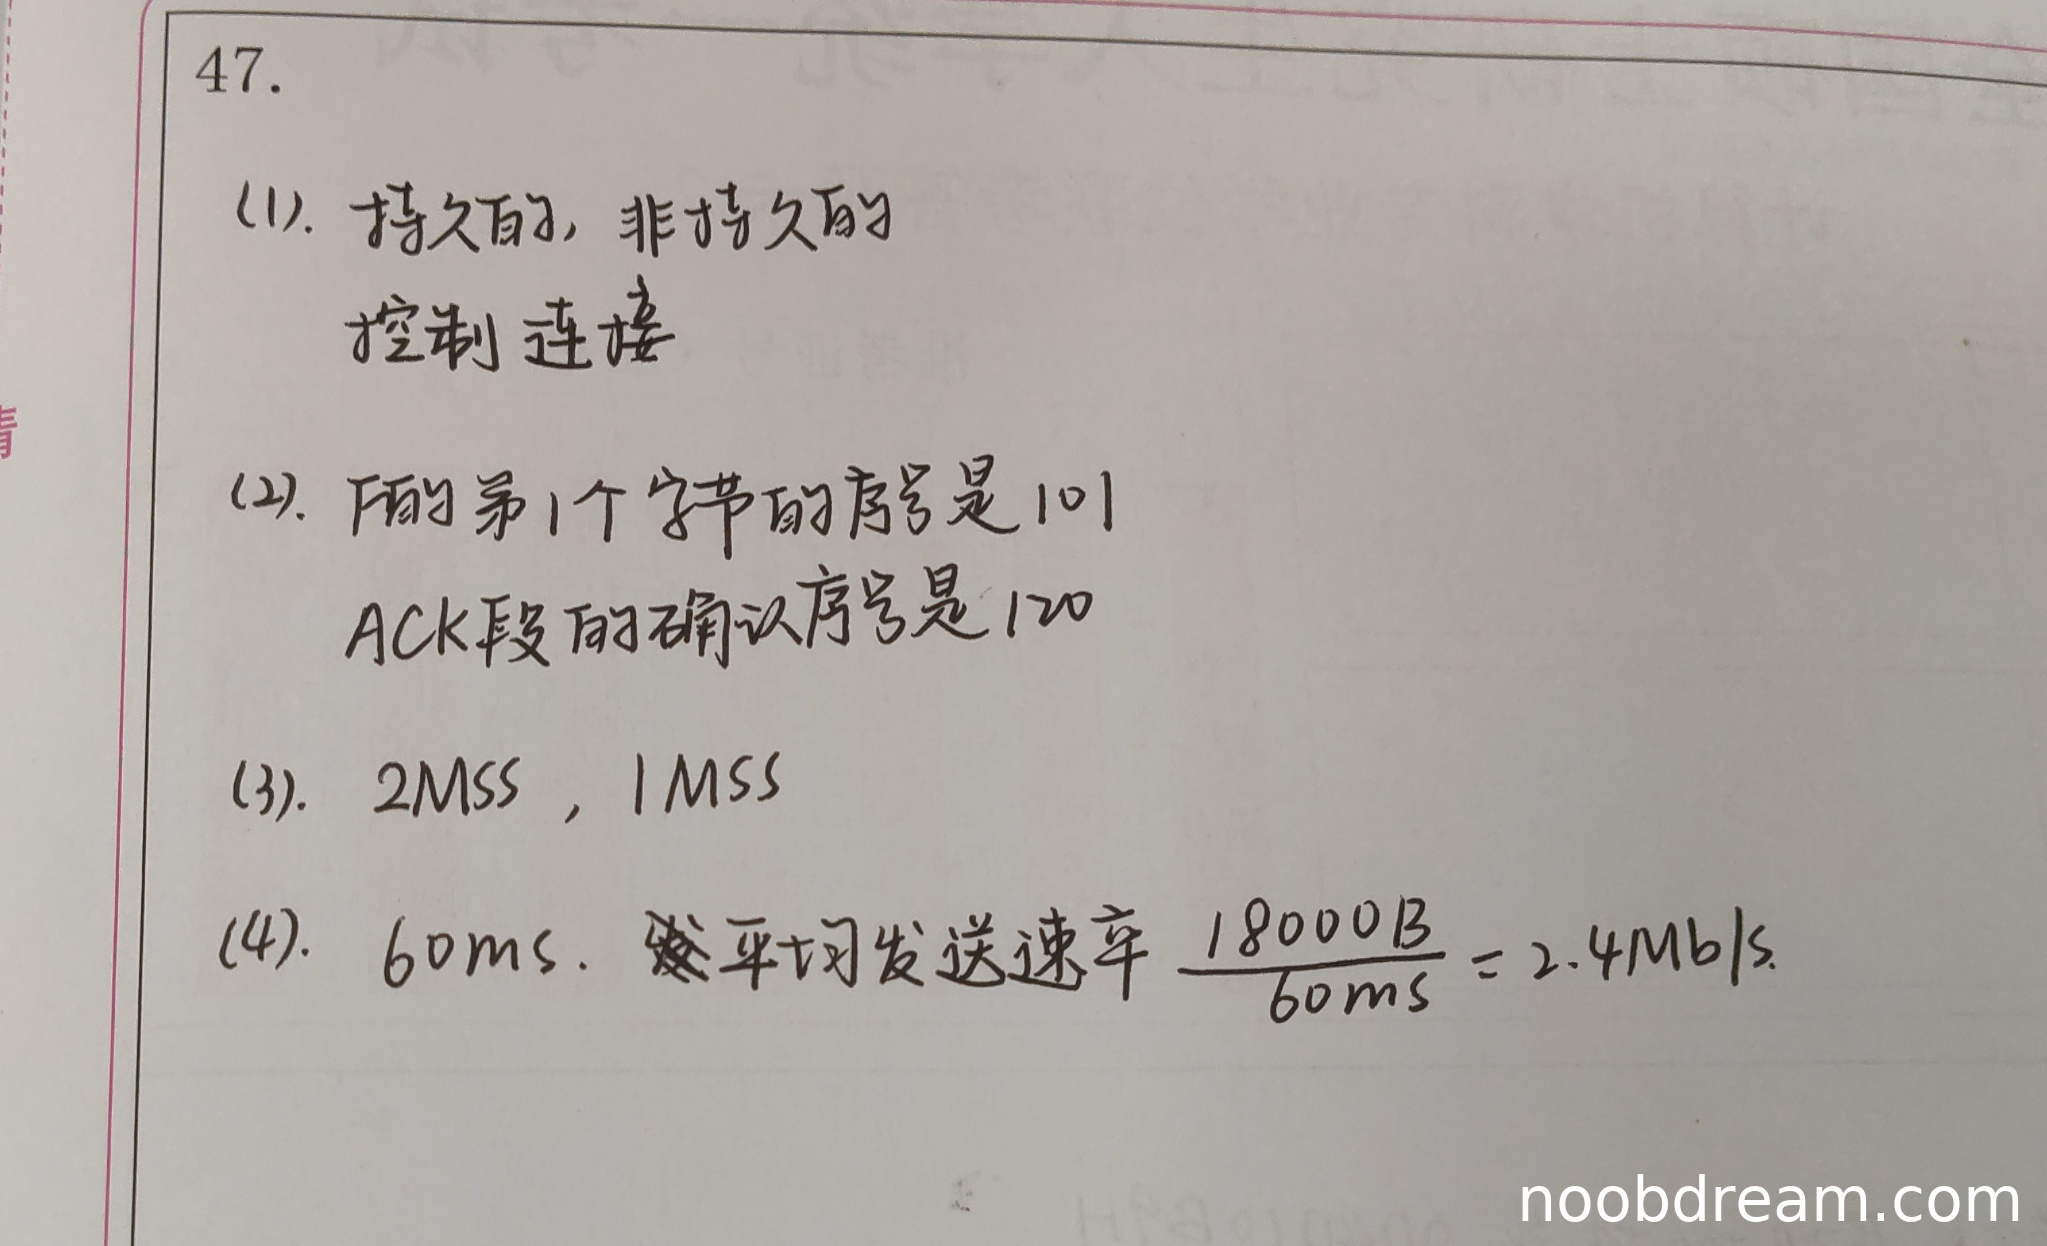 47.
(1). 持久的, 非持久的
控制连接
(2). F的第1个字节的序号是101
ACK段的确认序号是120
(3). 2MSS , 1MSS
(4). 60ms. 平均发送速率 18000B/60ms = 2.4Mb/s.
noobdream.com